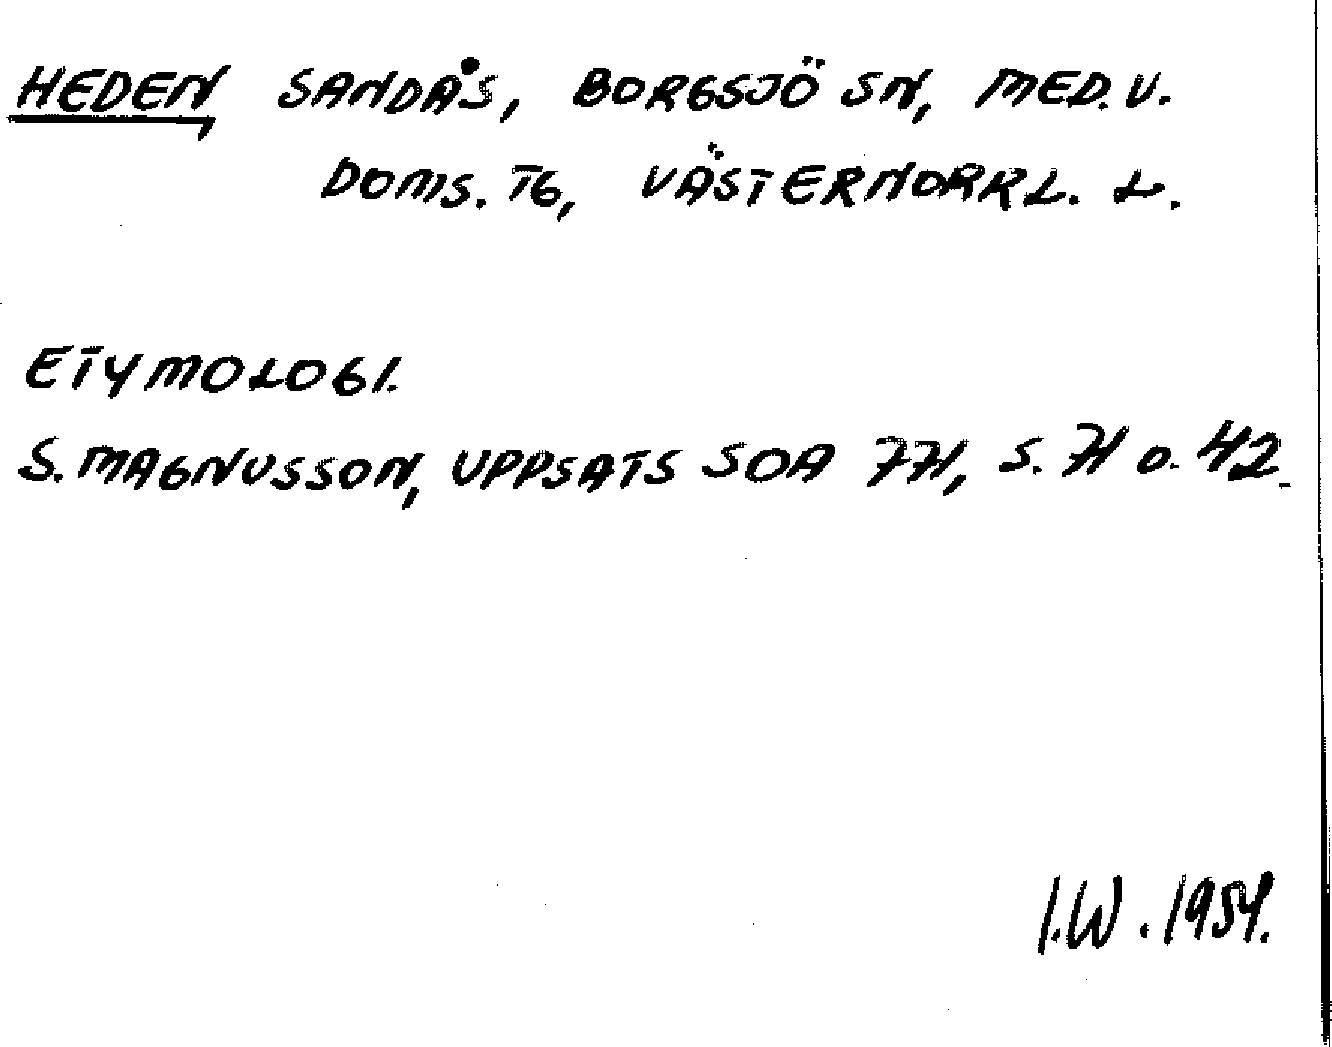 HEDEN, SANDÅS, BORGSJÖ SN, MED. V.
DOMS. TG, VÄSTERNORRL. L.
ETYMOLOGI.
S. MAGNUSSON, UPPSATS SOA s. o. 42.
I.W. 1954.